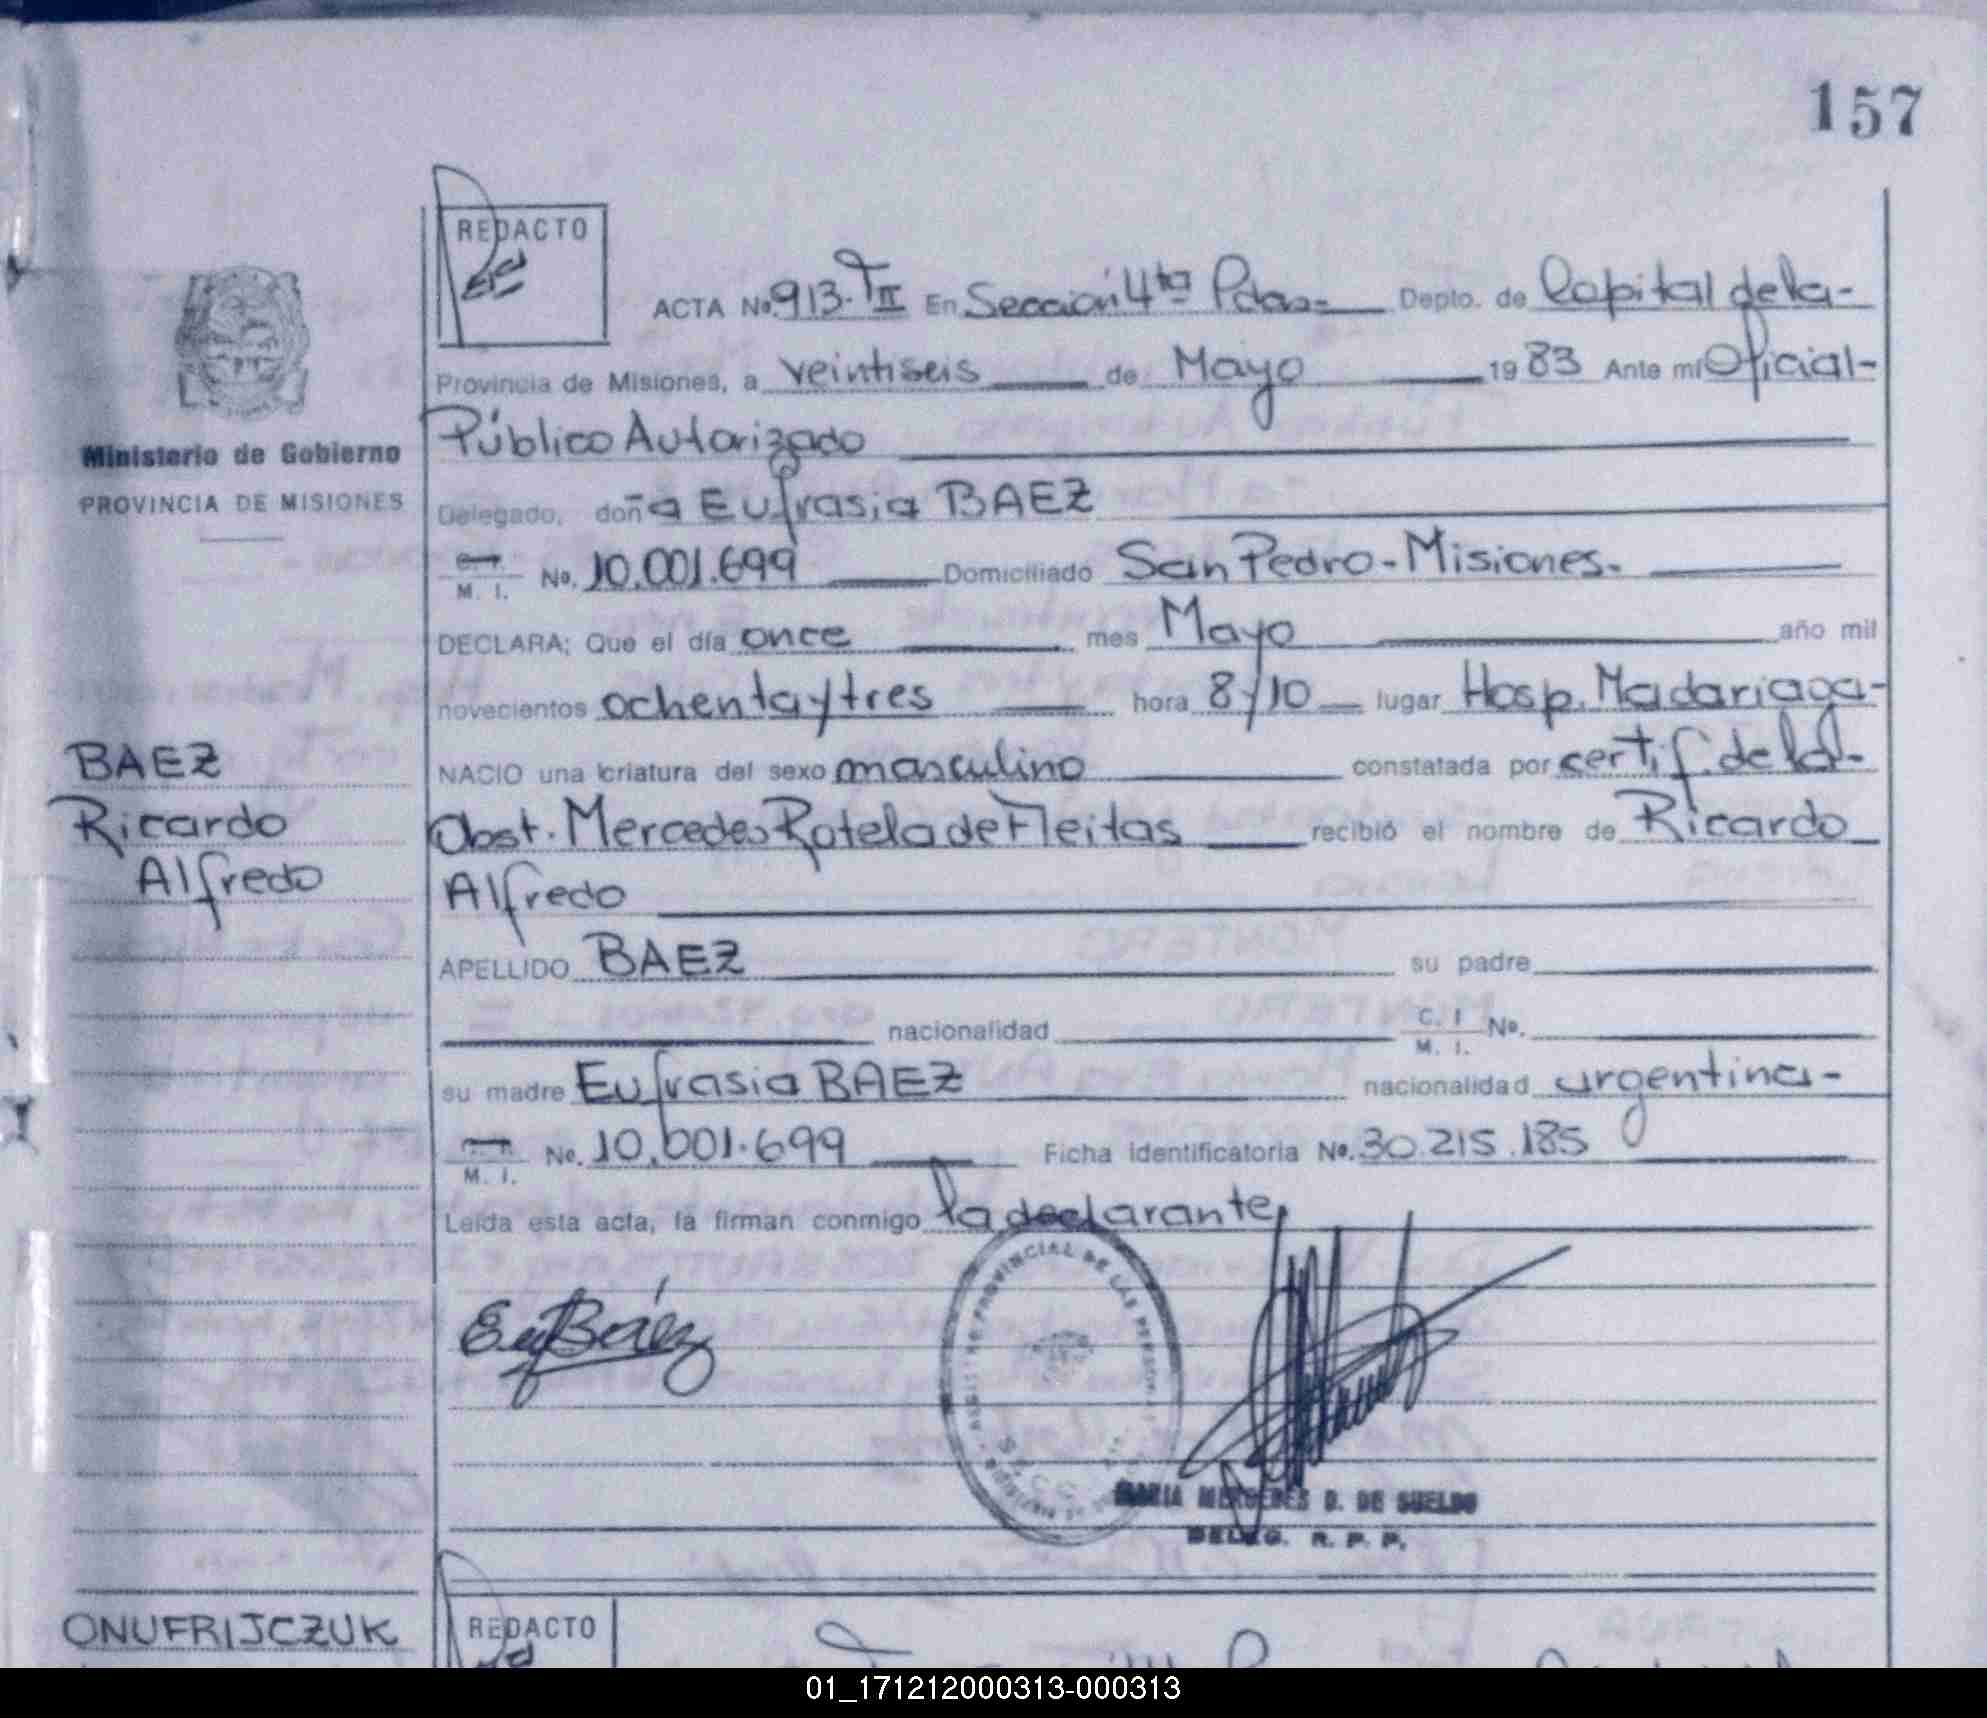 157
REDACTO
ACTA No. 913. T II En Sección 4ta Pdas- Depto. de Capital de la-
Provincia de Misiones, a veintiseis de Mayo 1983 Ante mí Oficial-
Público Autorizado
Ministerio de Gobierno
PROVINCIA DE MISIONES
Delegado, doña Eufrasia BAEZ
M. I. No. 10.001.699 Domiciliado San Pedro-Misiones.
DECLARA; Que el día once mes Mayo año mil
novecientos ochenta y tres hora 8y10 lugar Hosp. Madariaga-
NACIO una criatura del sexo masculino constatada por certif. de la
Obst. Mercedes Rotela de Fleitas recibió el nombre de Ricardo
Alfredo
BAEZ
Ricardo
Alfredo
APELLIDO BAEZ su padre
nacionalidad C. I M. I. No.
su madre Eufrasia BAEZ nacionalidad argentina-
M. I. No. 10.001.699 Ficha identificatoria No. 30.215.185
Leída esta acta, la firman conmigo la declarante,
EufBáez
PROVINCIAL DE LAS
SECC.
MARIA MERCEDES D. DE SUELDO
DELEG. R. P. P.
ONUFRIJCZUK
REDACTO
01_171212000313-000313